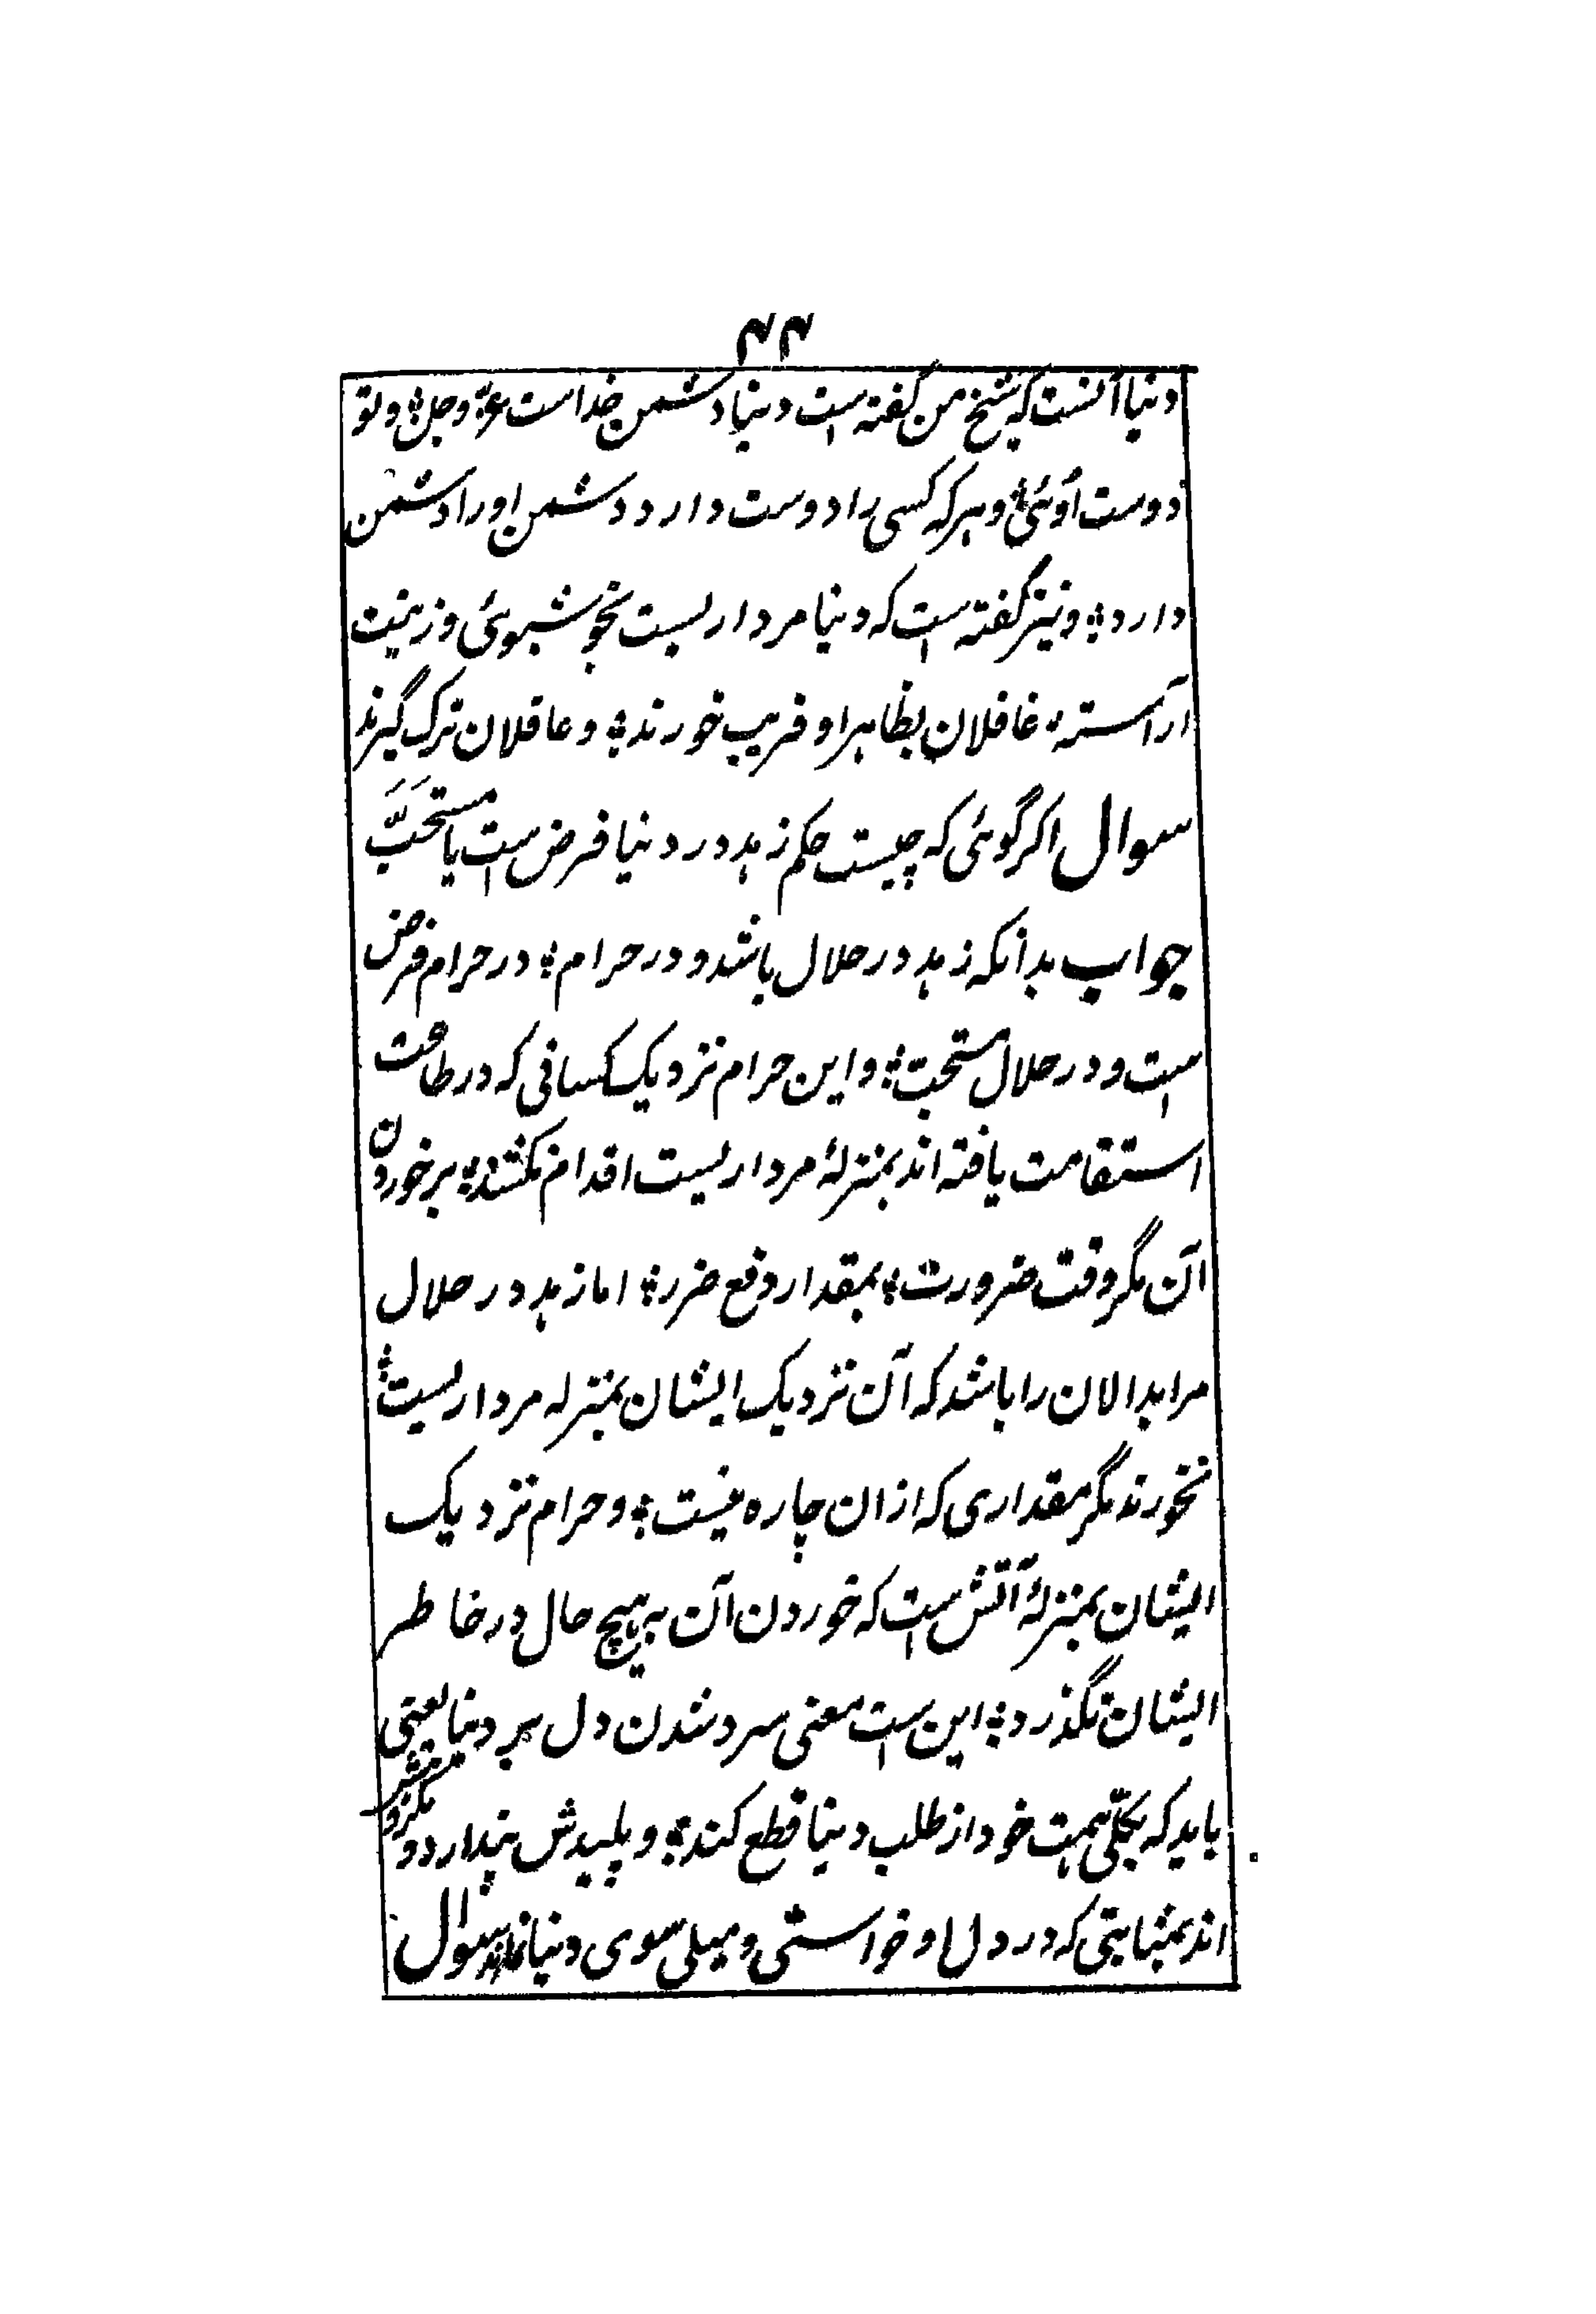 ۴۴
دنیا آنست که شیخ من گفته است دنیا دشمن خداست عز و جل؛ و تو
دوست اوئی؛ و هر که کسی را دوست دارد دشمن او را دشمن
دارد؛ و نیز گفته است که دنیا مرداریست بخوشبوئی و زینت
آراسته؛ غافلان بظاهر او فریب خورند؛ و عاقلان ترک گیرند
سوال اگر گوئی که چیست حکم زهد در دنیا فرض است یا مستحبَّ
جواب بدانکه زهد در حلال باشد و در حرام؛ در حرام فرض
است و در حلال مستحب؛ و این حرام نزدیک کسانی که در طاعت
استقامت یافته اند بمنزلهٔ مرداریست اقدام نکنند؛ بر خوردن
آن مگر وقت ضرورت؛ بمقدار دفع ضرر؛ اما زهد در حلال
مر ابدالان را باشد که آن نزدیک ایشان بمنزله مرداریست؛
نخورند مگر مقداری که ازان چاره نیست؛ و حرام نزدیک
ایشان بمنزلهٔ آتش است که خوردن آن به هیچ حال در خاطر
ایشان نگذرد؛ این است معنی سرد شدن دل بر دنیا یعنی
باید که بکلّی همت خود از طلب دنیا قطع کند؛ و پلیدش پندارد و
اند بمثابتی که در دل او خواستی و میلی سوی دنیا نماند سوال